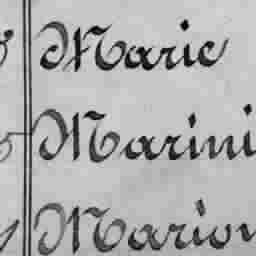 Marie
Marini
Marion